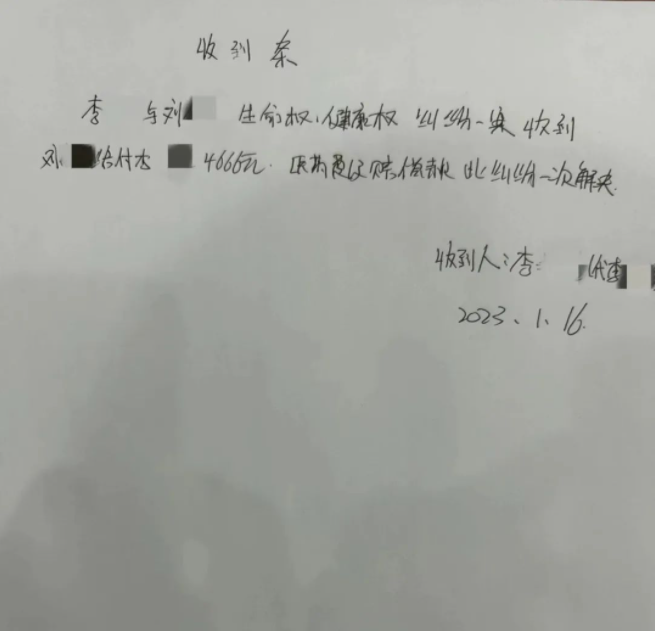 收到条
李 与刘 生命权、健康权纠纷一案收到
刘 给付李 4666元. 医药费及赔偿款 此纠纷一次解决.
收到人:李 代李
2023、1、16.